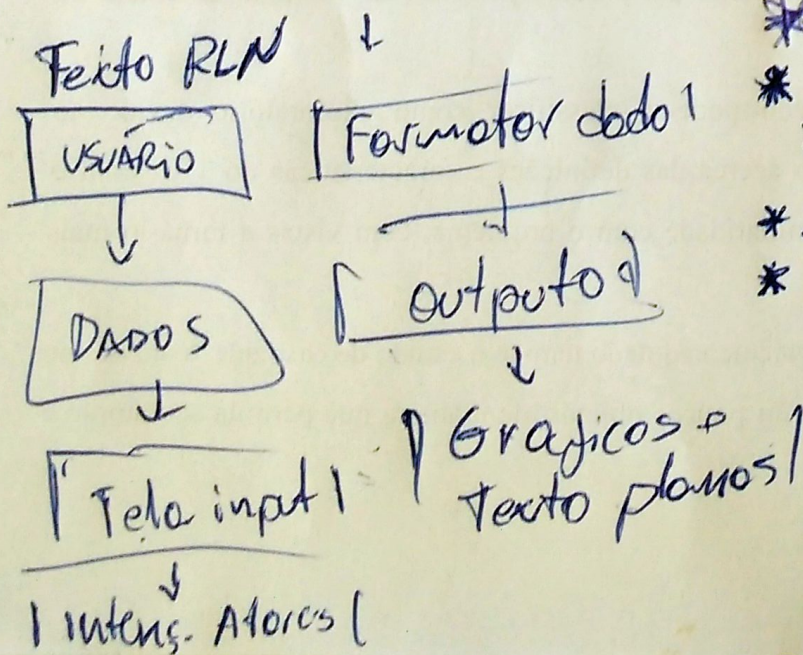 Texto RLN
USUÁRIO
DADOS
Tela input
intenç. Atores
Formator dado
output
Graficos +
Texto planos